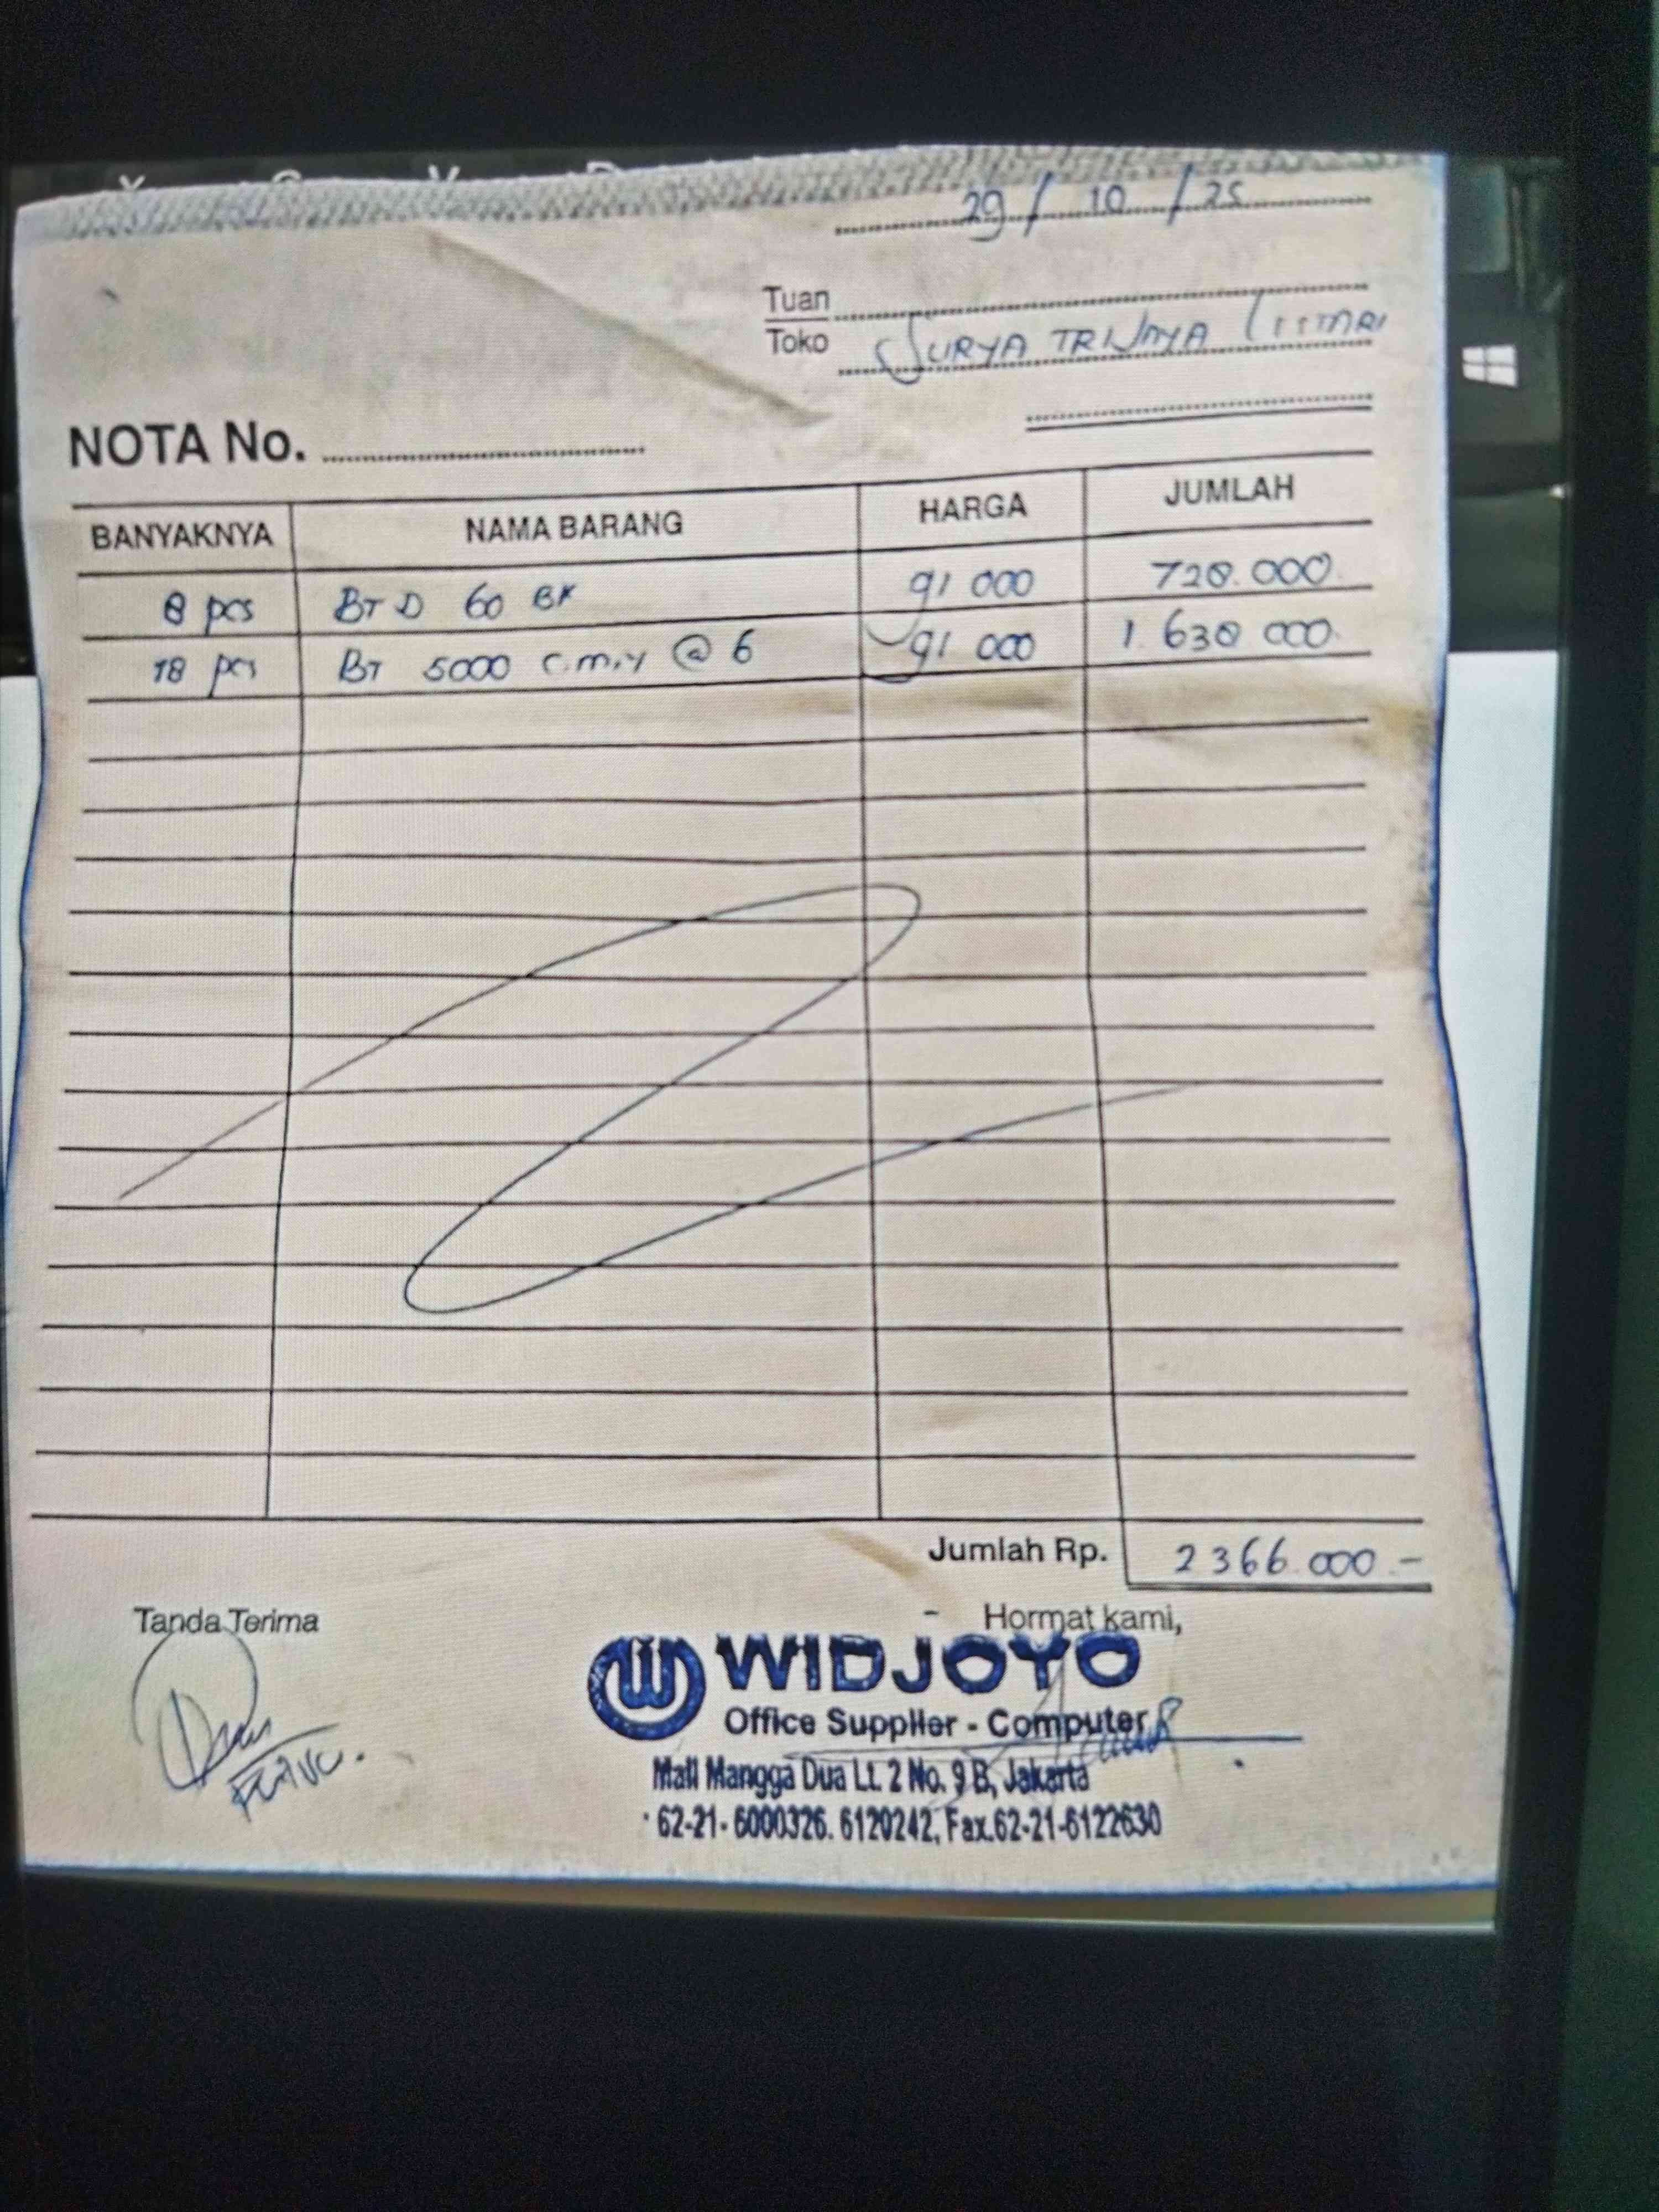 29 / 10 / 25
Tuan
Toko SURYA TRIJAYA
NOTA No.
BANYAKNYA NAMA BARANG HARGA JUMLAH
8 pcs BT D 60 BK 91 000 728.000
18 pcs BT 5000 c.m.y @ 6 91 000 1.638 000
Jumlah Rp. 2 366.000.-
Tanda Terima Hormat kami,
WIDJOYO
Office Supplier - Computer
Mall Mangga Dua Lt. 2 No. 9 B, Jakarta
62-21- 6000326. 6120242, Fax.62-21-6122630